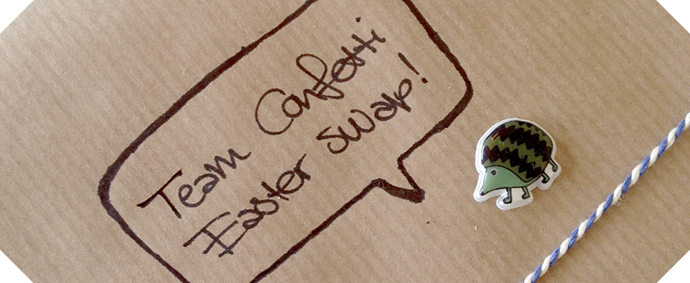 Team Confetti
Easter Swap!